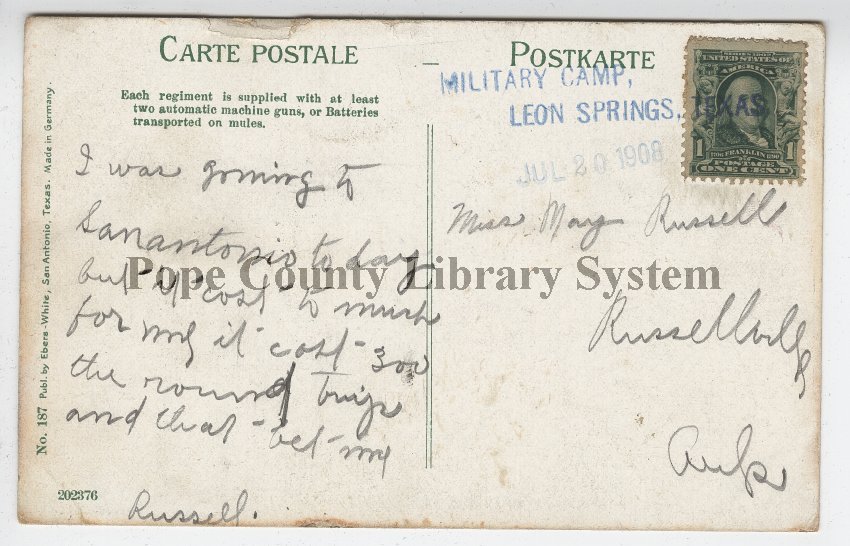 CARTE POSTALE — POSTKARTE
Each regiment is supplied with at least
two automatic machine guns, or Batteries
transported on mules.
MILITARY CAMP,
LEON SPRINGS, TEXAS
JUL 20 1908
UNITED STATES OF
AMERICA
1 FRANKLIN 1
POSTAGE
ONE CENT
No. 187 Publ. by Ebers-White, San Antonio, Texas. Made in Germany.
I was goming to
Sanantonio to day
but it cost to much
for me it cost 300
the round trip
and that bet me
Russell.
Miss Mary Russell
Russellville
Ark
202376
Pope County Library System